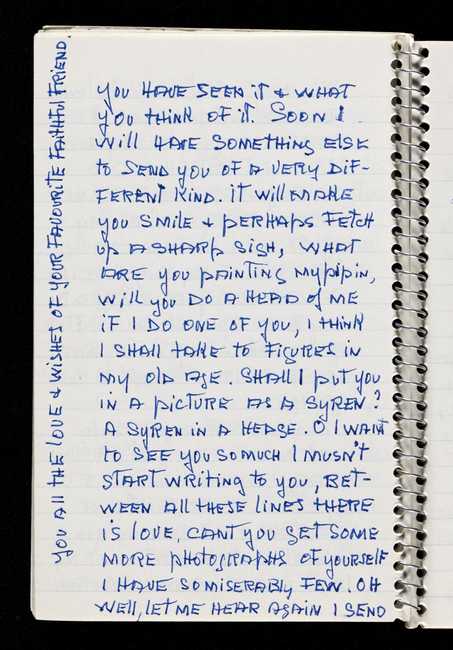 you HAVE SEEN it & WHAT
you think of it. Soon I
will HAVE SOMETHING ELSE
to SEND you OF A VERY DIF-
FERENT KIND. it will MAKE
you SMILE & pERHApS FETCH
up A SHARp SIGH, WHAT
ARE you pAiNtiNG my pipin,
will you DO A HEAD of ME
iF I DO ONE OF you, I tHiNK
I SHALL TAKE to FiGURES iN
my OLD AGE. SHALL I put you
iN A picTURE AS A SYREN?
A SYREN iN A HEDGE. O I WANt
to SEE you SO MUCH I MUSN't
START WRITING to you, BET-
WEEN All tHESE liNES tHERE
iS lOVE, CANT you GET SOME
MORE pHOtOGRApHS OF yoURSElF
I HAVE SO MISERABLY FEW. OH
WEll, lET ME HEAR AGAiN I SEND
you All tHE lOVE & WiSHES OF yOUR FAVOURITE FAitHFul FRiEND.